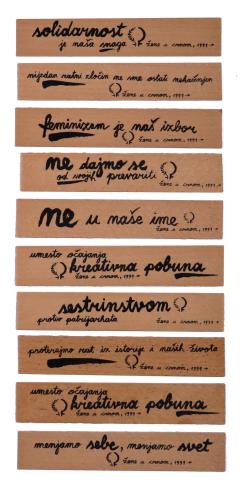 solidarnost
je naša snaga Žene u crnom, 1991→
nijedan ratni zločin ne sme ostati nekažnjen
Žene u crnom, 1991→
feminizam je naš izbor
Žene u crnom, 1991→
ne dajmo se
od svojih prevariti Žene u crnom, 1991→
ne u naše ime
Žene u crnom, 1991→
umesto očajanja
kreativna pobuna
Žene u crnom, 1991→
sestrinstvom
protiv patrijarhata Žene u crnom, 1991→
proterajmo rat iz istorije i naših života
Žene u crnom, 1991→
umesto očajanja
kreativna pobuna
Žene u crnom, 1991→
menjamo sebe, menjamo svet
Žene u crnom, 1991→